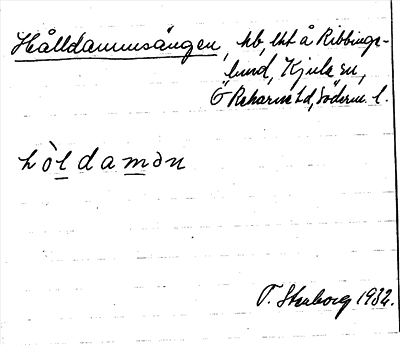 Hålldammsängen, hb, lht å Ribbings-
lund, Kjula sn,
Ö Rekarne hd, Söderm. l.
hòldamən
1932.